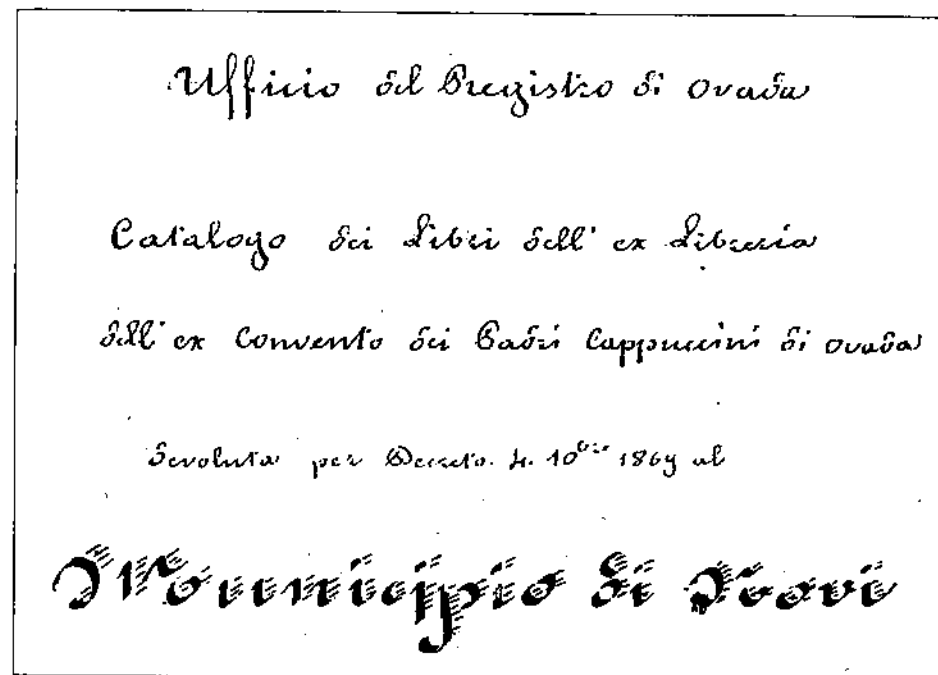 Ufficio del Registro di Ovada
Catalogo dei Libri dell' ex Libreria
dell' ex Convento dei Padri Cappuccini di Ovada
devoluta per Decreto 4. 10bre 1869 al
Municipio di Novi